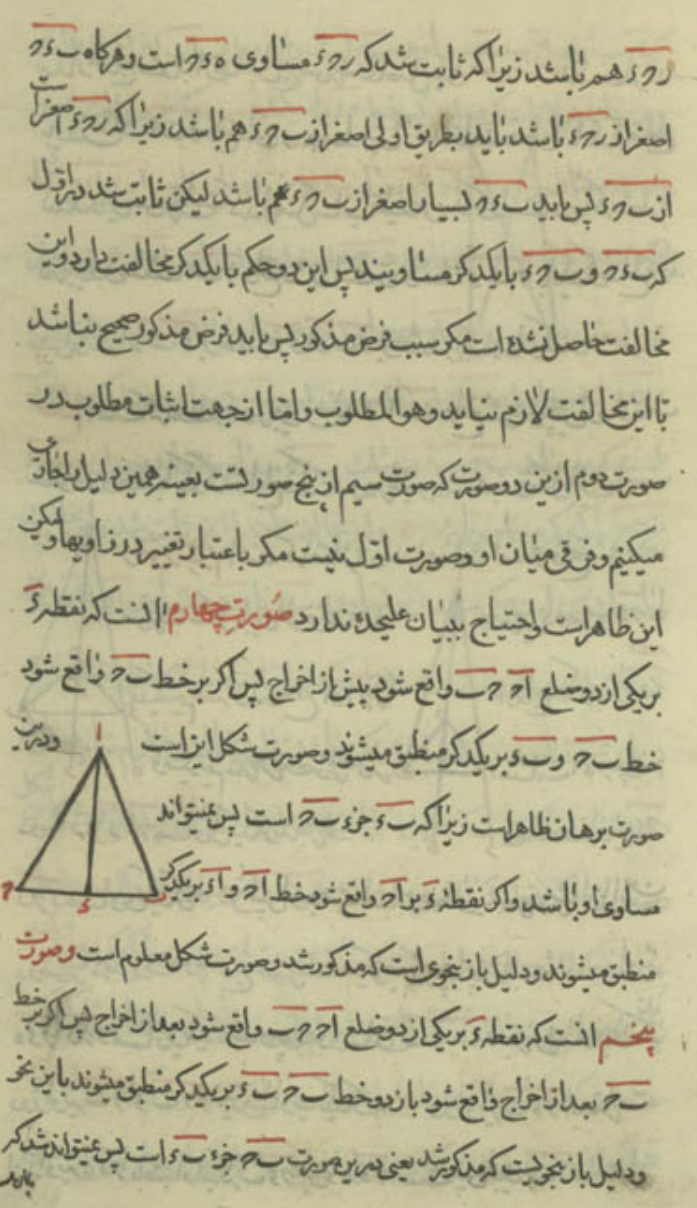 ر ح ء هم باشد زیرا که ثابت شد که ر ح ء مساوی ه ء ح است و هرکاه ب ء ح
اصغر از ر ح ء باشد باید بطریق اولی اصغر از ب ح ء هم باشد زیرا که ر ح ء اصغر است
از ب ح ء پس باید ب ء ح بسیار اصغر از ب ح ء هم باشد لیکن ثابت شد در اول
که ب ء ح و ب ح ء بایکدکر مساویند پس این دو حکم بایکدکر مخالفت دارد و این
مخالفت حاصل نشده است مکر بسبب فرض مذکور پس باید فرض مذکور صحیح نباشد
تا این مخالفت لازم نیاید و هو المطلوب و اما از جهت اثبات مطلوب در
صورت دوم ازین دو صورت که صورت سیم از پنج صورتست بعینه همین دلیل را جاری
میکنیم و فرقی میان او و صورت اول نیست مکر باعتبار تغییر در زاویها و لیکن
این ظاهر است و احتیاج ببیان علیحده ندارد صورت چهارم انست که نقطه ء
بریکی از دو ضلع ا ح ح ب واقع شود پیش از اخراج پس اکر بر خط ب ح واقع شود
خط ب ح و ب ء بریکدکر منطبق میشوند و صورت شکل این است و درین
صورت برهان ظاهر است زیرا که ب ء جزء ب ح است پس نمیتواند
مساوی او باشد و اکر نقطهٔ ء بر ا ح واقع شود خط ا ح و ا ء بریکدکر
منطبق میشوند و دلیل باز بنحوی است که مذکور شد و صورت شکل معلوم است و صورت
پنجم انست که نقطه ء بریکی از دو ضلع ا ح ح ب واقع شود بعد از اخراج پس اکر بر خط
ب ح بعد از اخراج واقع شود باز دو خط ب ح ب ء بریکدکر منطبق میشوند باین نحو
و دلیل باز بنحویست که مذکور شد یعنی درین صورت ب ح جزء ب ء است پس نمیتواند شد که
ا
ح ء ب